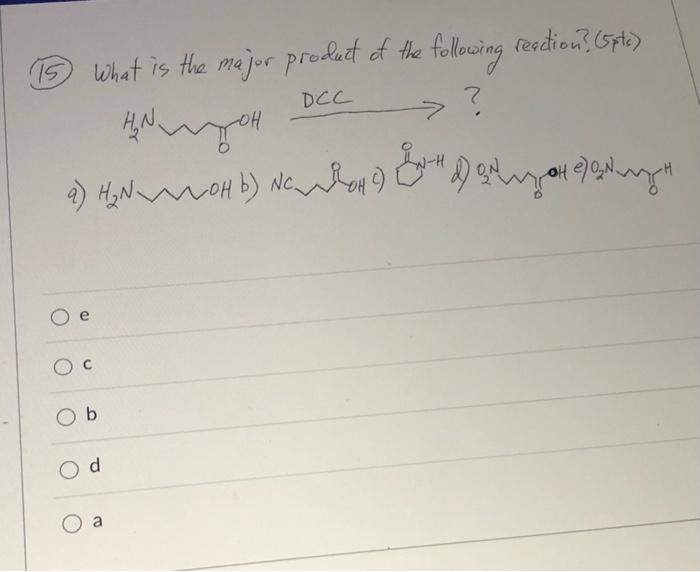 15 What is the major product of the following reaction? (5pts)
H2N OH O DCC ?
a) H2N OH b) NC O OH c) O N-H d) O2N OH O e) O2N H O
e
c
b
d
a